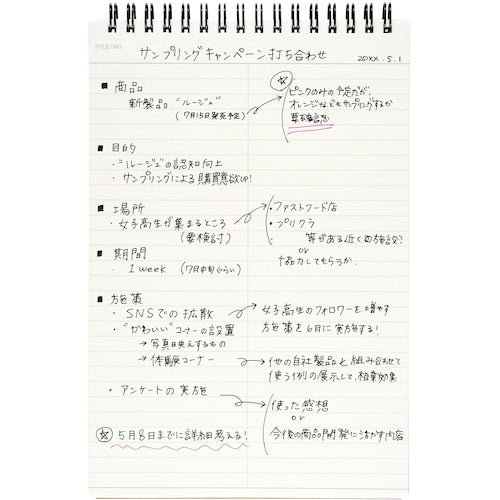 TITLE / NO.
サンプリングキャンペーン打ち合わせ 20XX.5.1
■ 商品
新製品 "ルージュ"
(7月15日発売予定)
☆
ピンクのみの予定だが、
オレンジなどもサンプリングするか
要確認
■ 目的
・"ルージュ"の認知向上
・サンプリングによる購買意欲UP!
■ 場所
・女子高生が集まるところ
(要検討)
・ファストフード店
・プリクラ
等がある近くの施設?
or
協力してもらうか、
■ 期間
・1week (7月中旬ぐらい)
■ 方策
・SNSでの拡散
女子高生のフォロワーを増やす
方策を6月に実施する!
・"かわいい"コーナーの設置
→写真映えするもの
→体験コーナー
他の自社製品と組み合わせて
使う例の展示して、相乗効果
・アンケートの実施
使った感想
or
今後の商品開発に活かす内容
☆ 5月8日までに詳細考える!